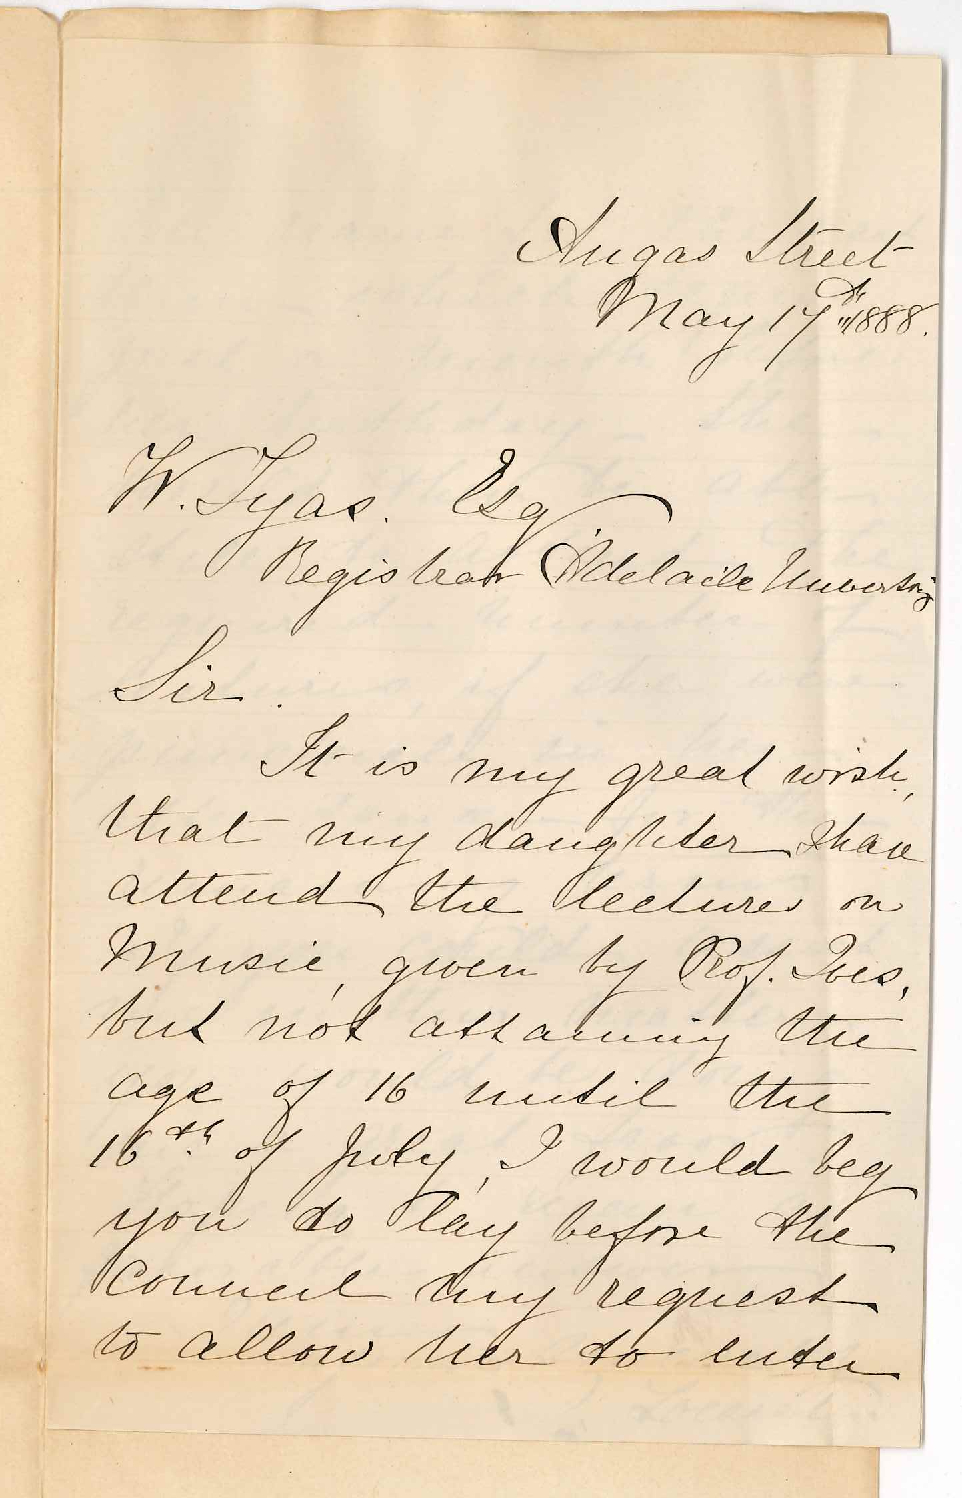 Angas Street
May 17th 1888.
W. Tyas. Esq
Registrar Adelaide University
Sir.
It is my great wish,
that my daughter
attend the lectures on
Music, given by Prof. Ives,
but not attaining the
age of 16 until the
16th. of July, I would beg
you to lay before the
Council my request
to allow her to enter